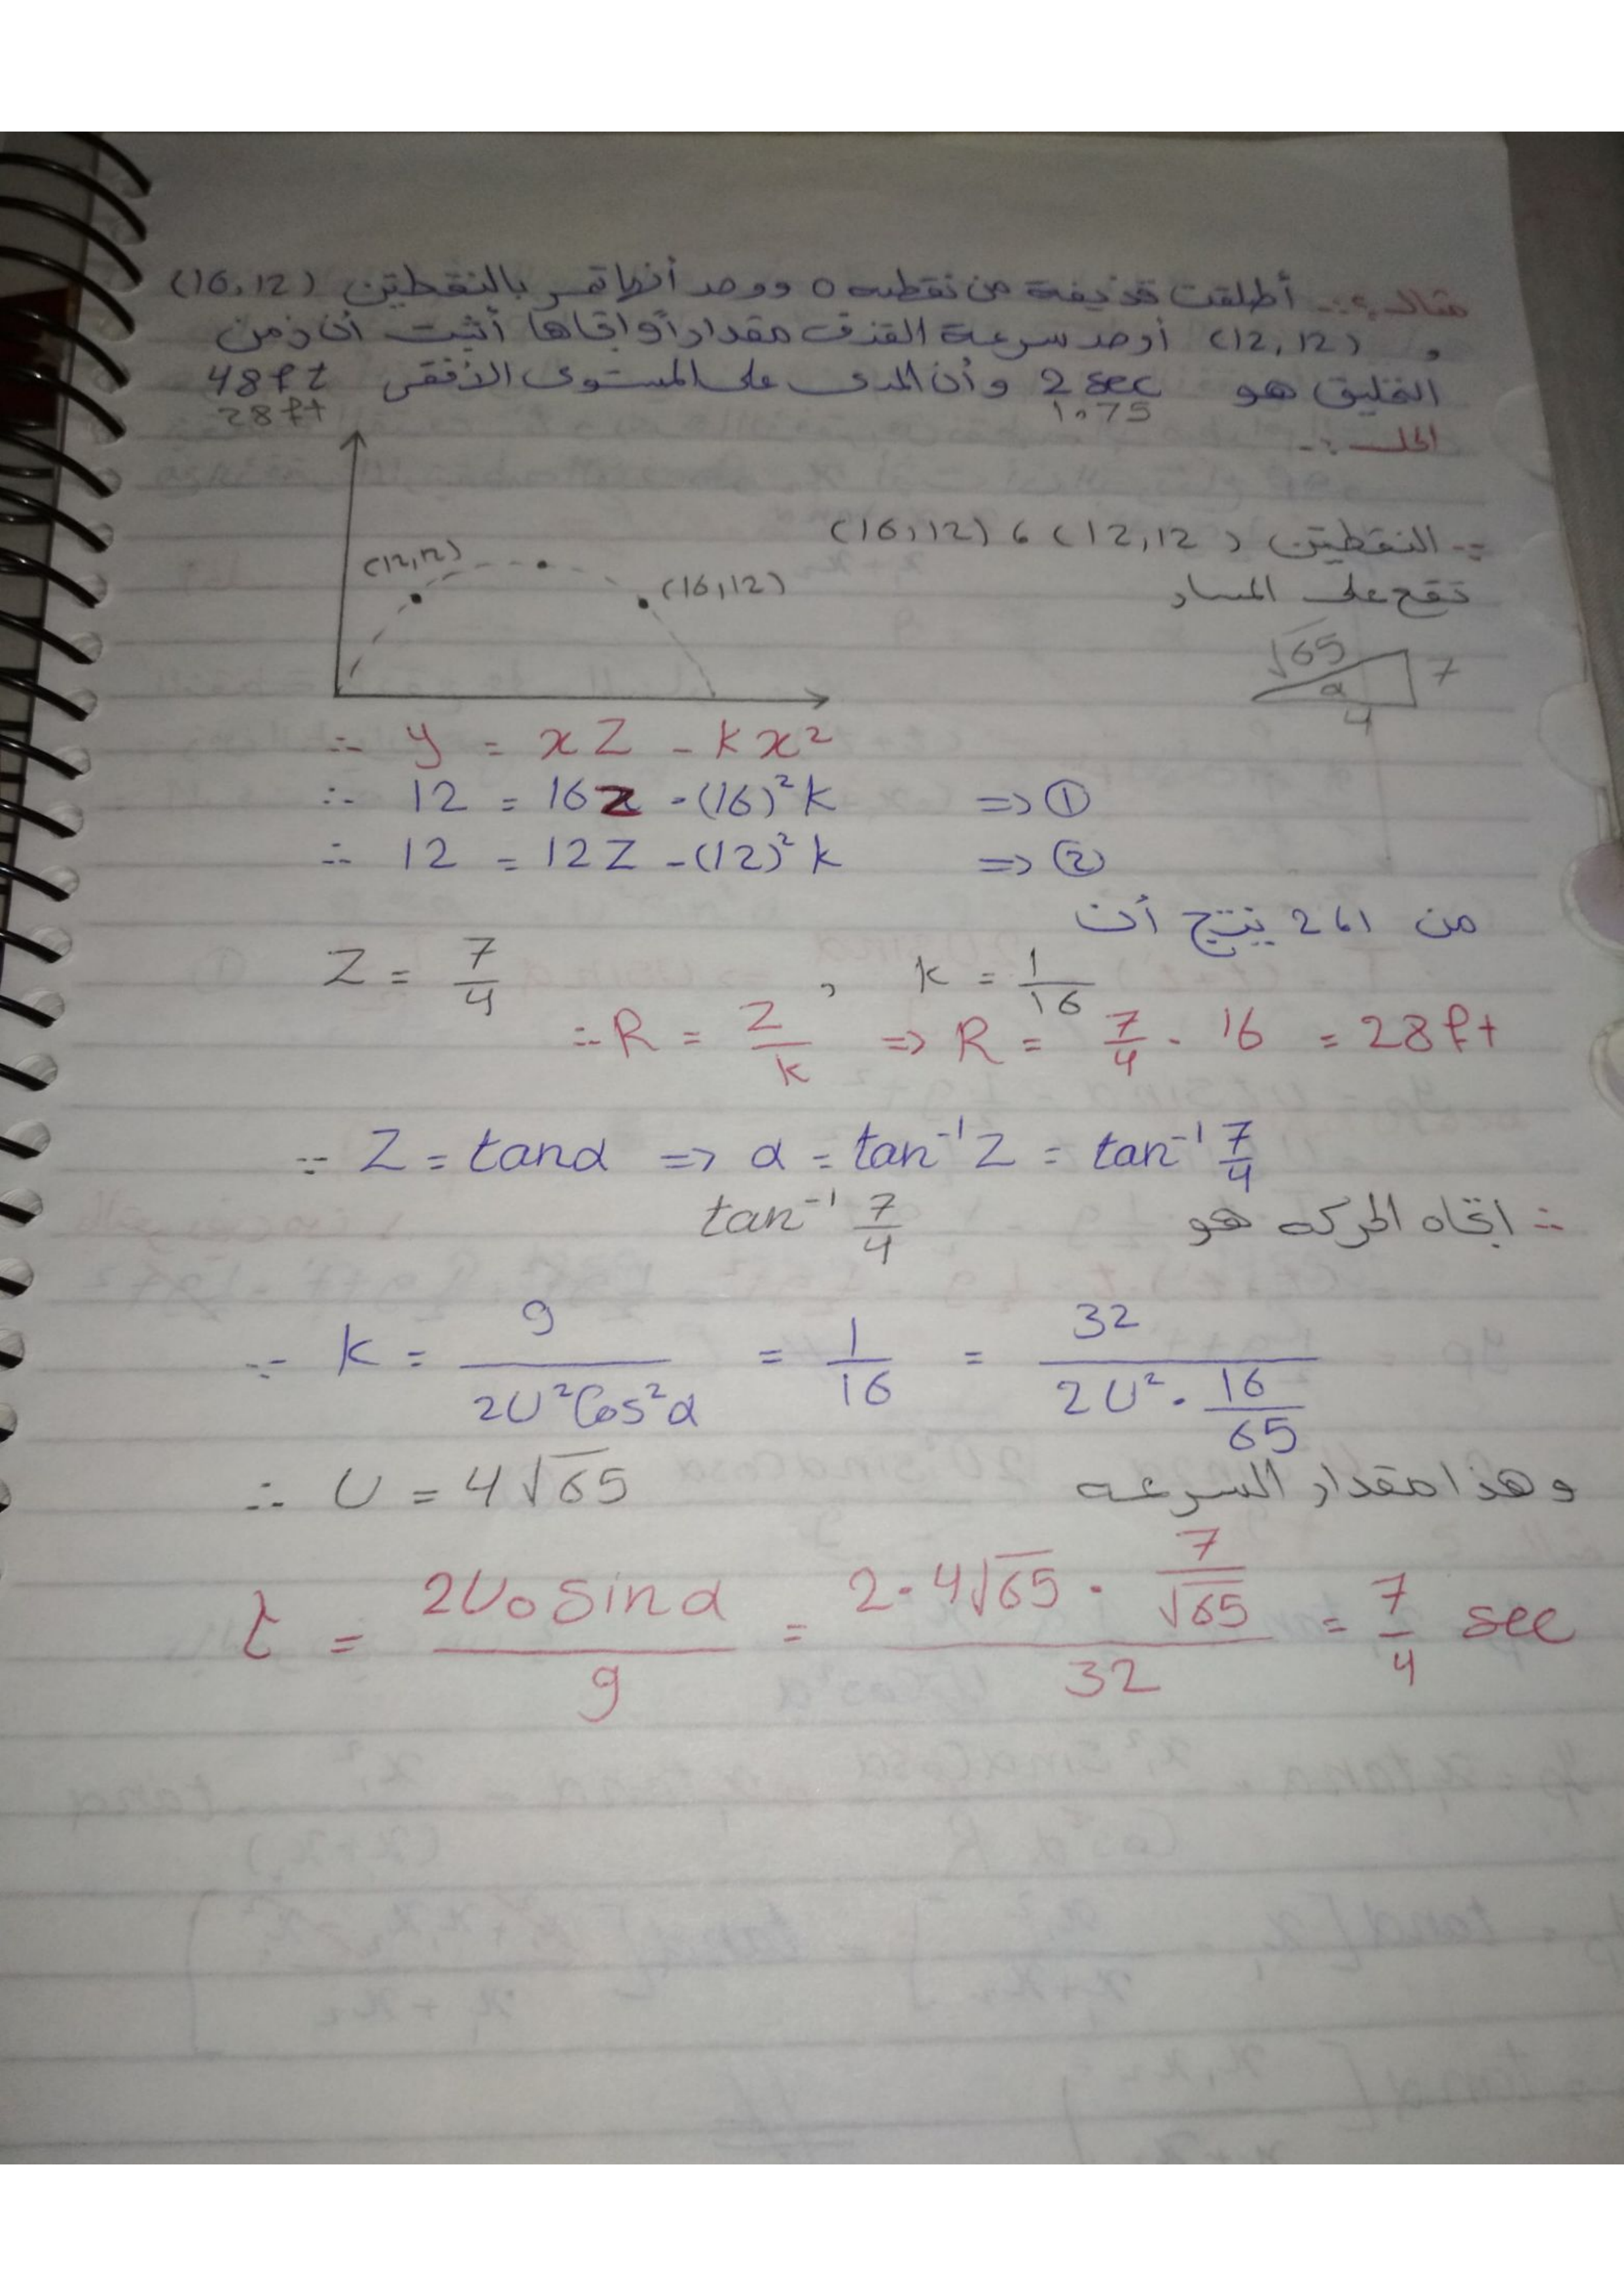 مثال :- أطلقت قذيفة من نقطه o ووجد أنها تمر بالنقطتين (16,12)
و (12,12) أوجد سرعة القذف مقداراً واتجاها أثبت أن زمن
التحليق هو 2 sec وأن المدى على المستوى الأفقى 48 ft
1.75 28 ft
الحل :-
∵ النقطتين (12,12) ، (16,12)
تقع على المسار
(12,12)
(16,12)
√65 7
α
4
∴ y = xZ - kx²
∴ 12 = 16Z - (16)²k => ①
∴ 12 = 12Z - (12)²k => ②
من 1،2 ينتج أن
Z = 7/4 , k = 1/16
∴ R = Z/k => R = 7/4 · 16 = 28 ft
∵ Z = tanα => α = tan⁻¹ Z = tan⁻¹ 7/4
∴ اتجاه الحركه هو tan⁻¹ 7/4
∵ k = g/(2U²Cos²α) = 1/16 = 32/(2U² · 16/65)
∴ U = 4√65 وهذا مقدار السرعه
t = 2U₀ sinα / g = (2·4√65 · 7/√65)/32 = 7/4 sec